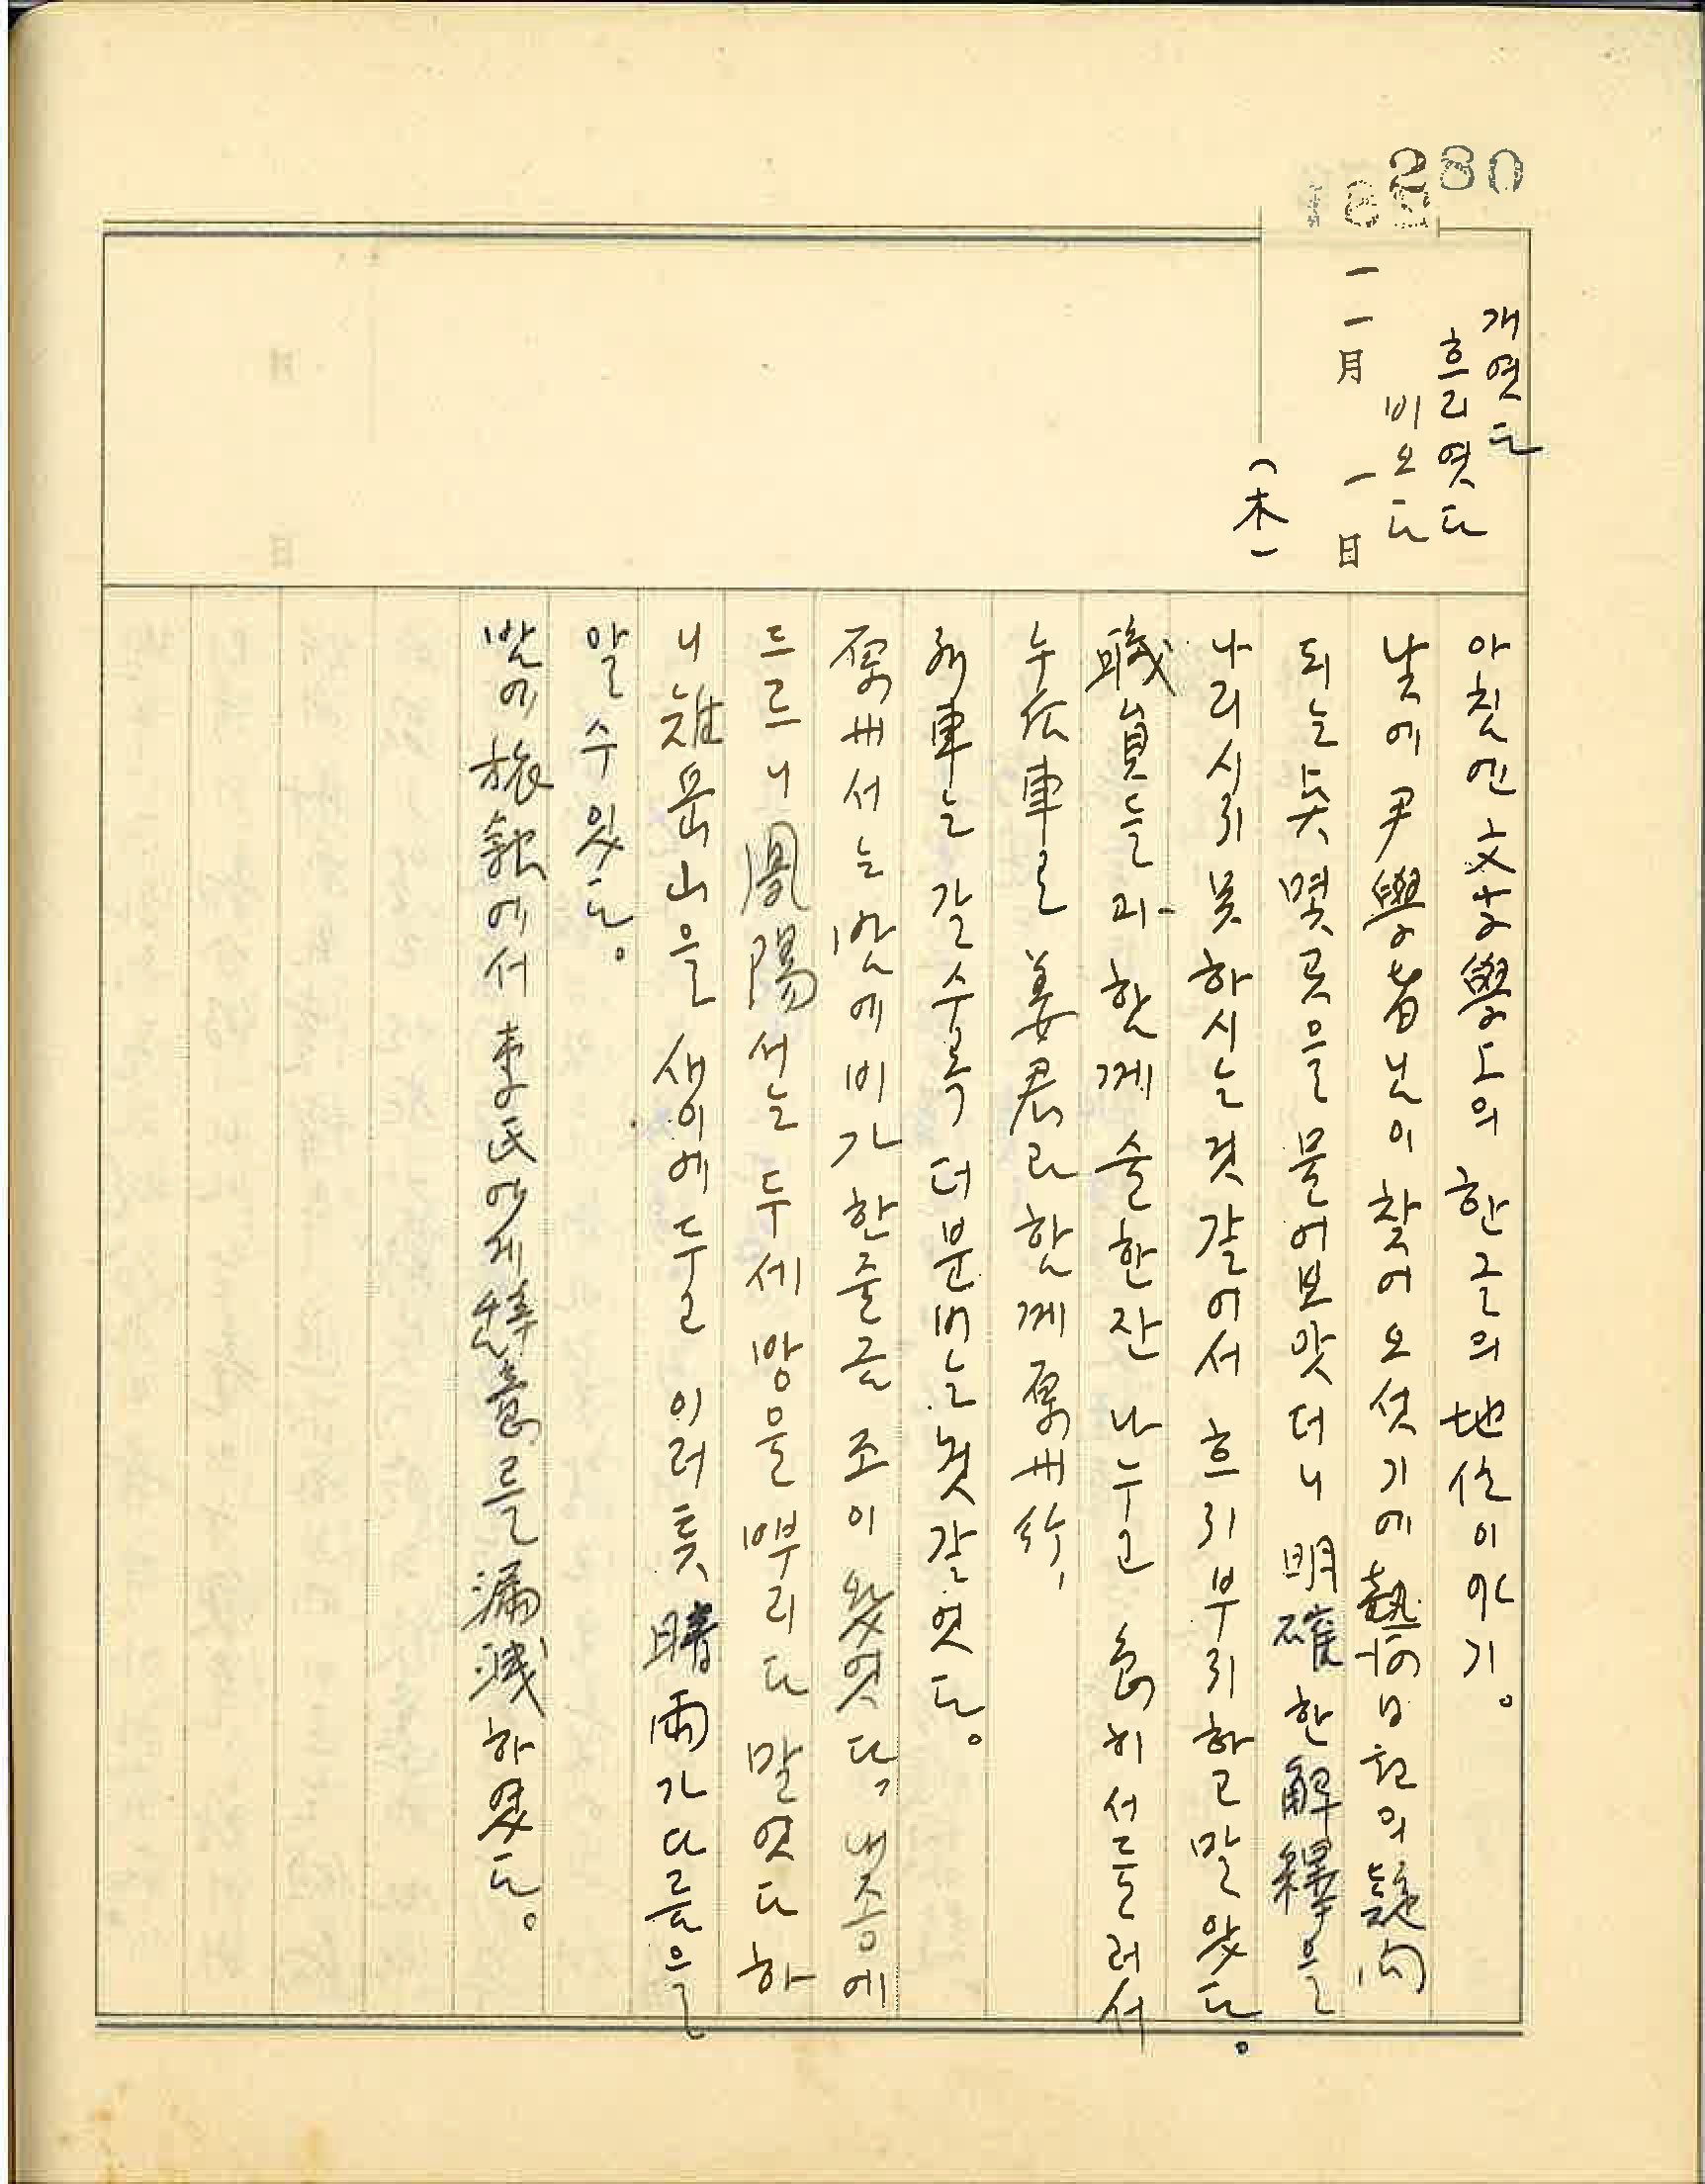 280
개엿다
흐리엿다
비오다
一一月 一日
(木)
아침엔 文学學도의 한글의 地位이야기。
낮에 尹學者님이 찾어오섯기에 熱河日記의 疑問
되는 곳 몇곳을 물어보앗더니 明確한 解釋을
나리시지 못하시는 것 갈어서 흐리부리하고 말앗다。
職員들과 함께 술한잔 나누고 急히 서들러서
누 車로 姜君과 함께 原州 、
列車는 갈수록 더 분비는 것 갈엇다。
原州서는 밤에 비가 한줄금 조이 왓엇다, 내중에
드르니 鳳陽서는 두세 방울 뿌리다 말엇다 하
니 雉岳山을 새이에 두고 이러틋 晴雨가 다름을
알 수 잇다。
밤에 旅館에서 李氏에게 辭意를 漏洩하엿다。